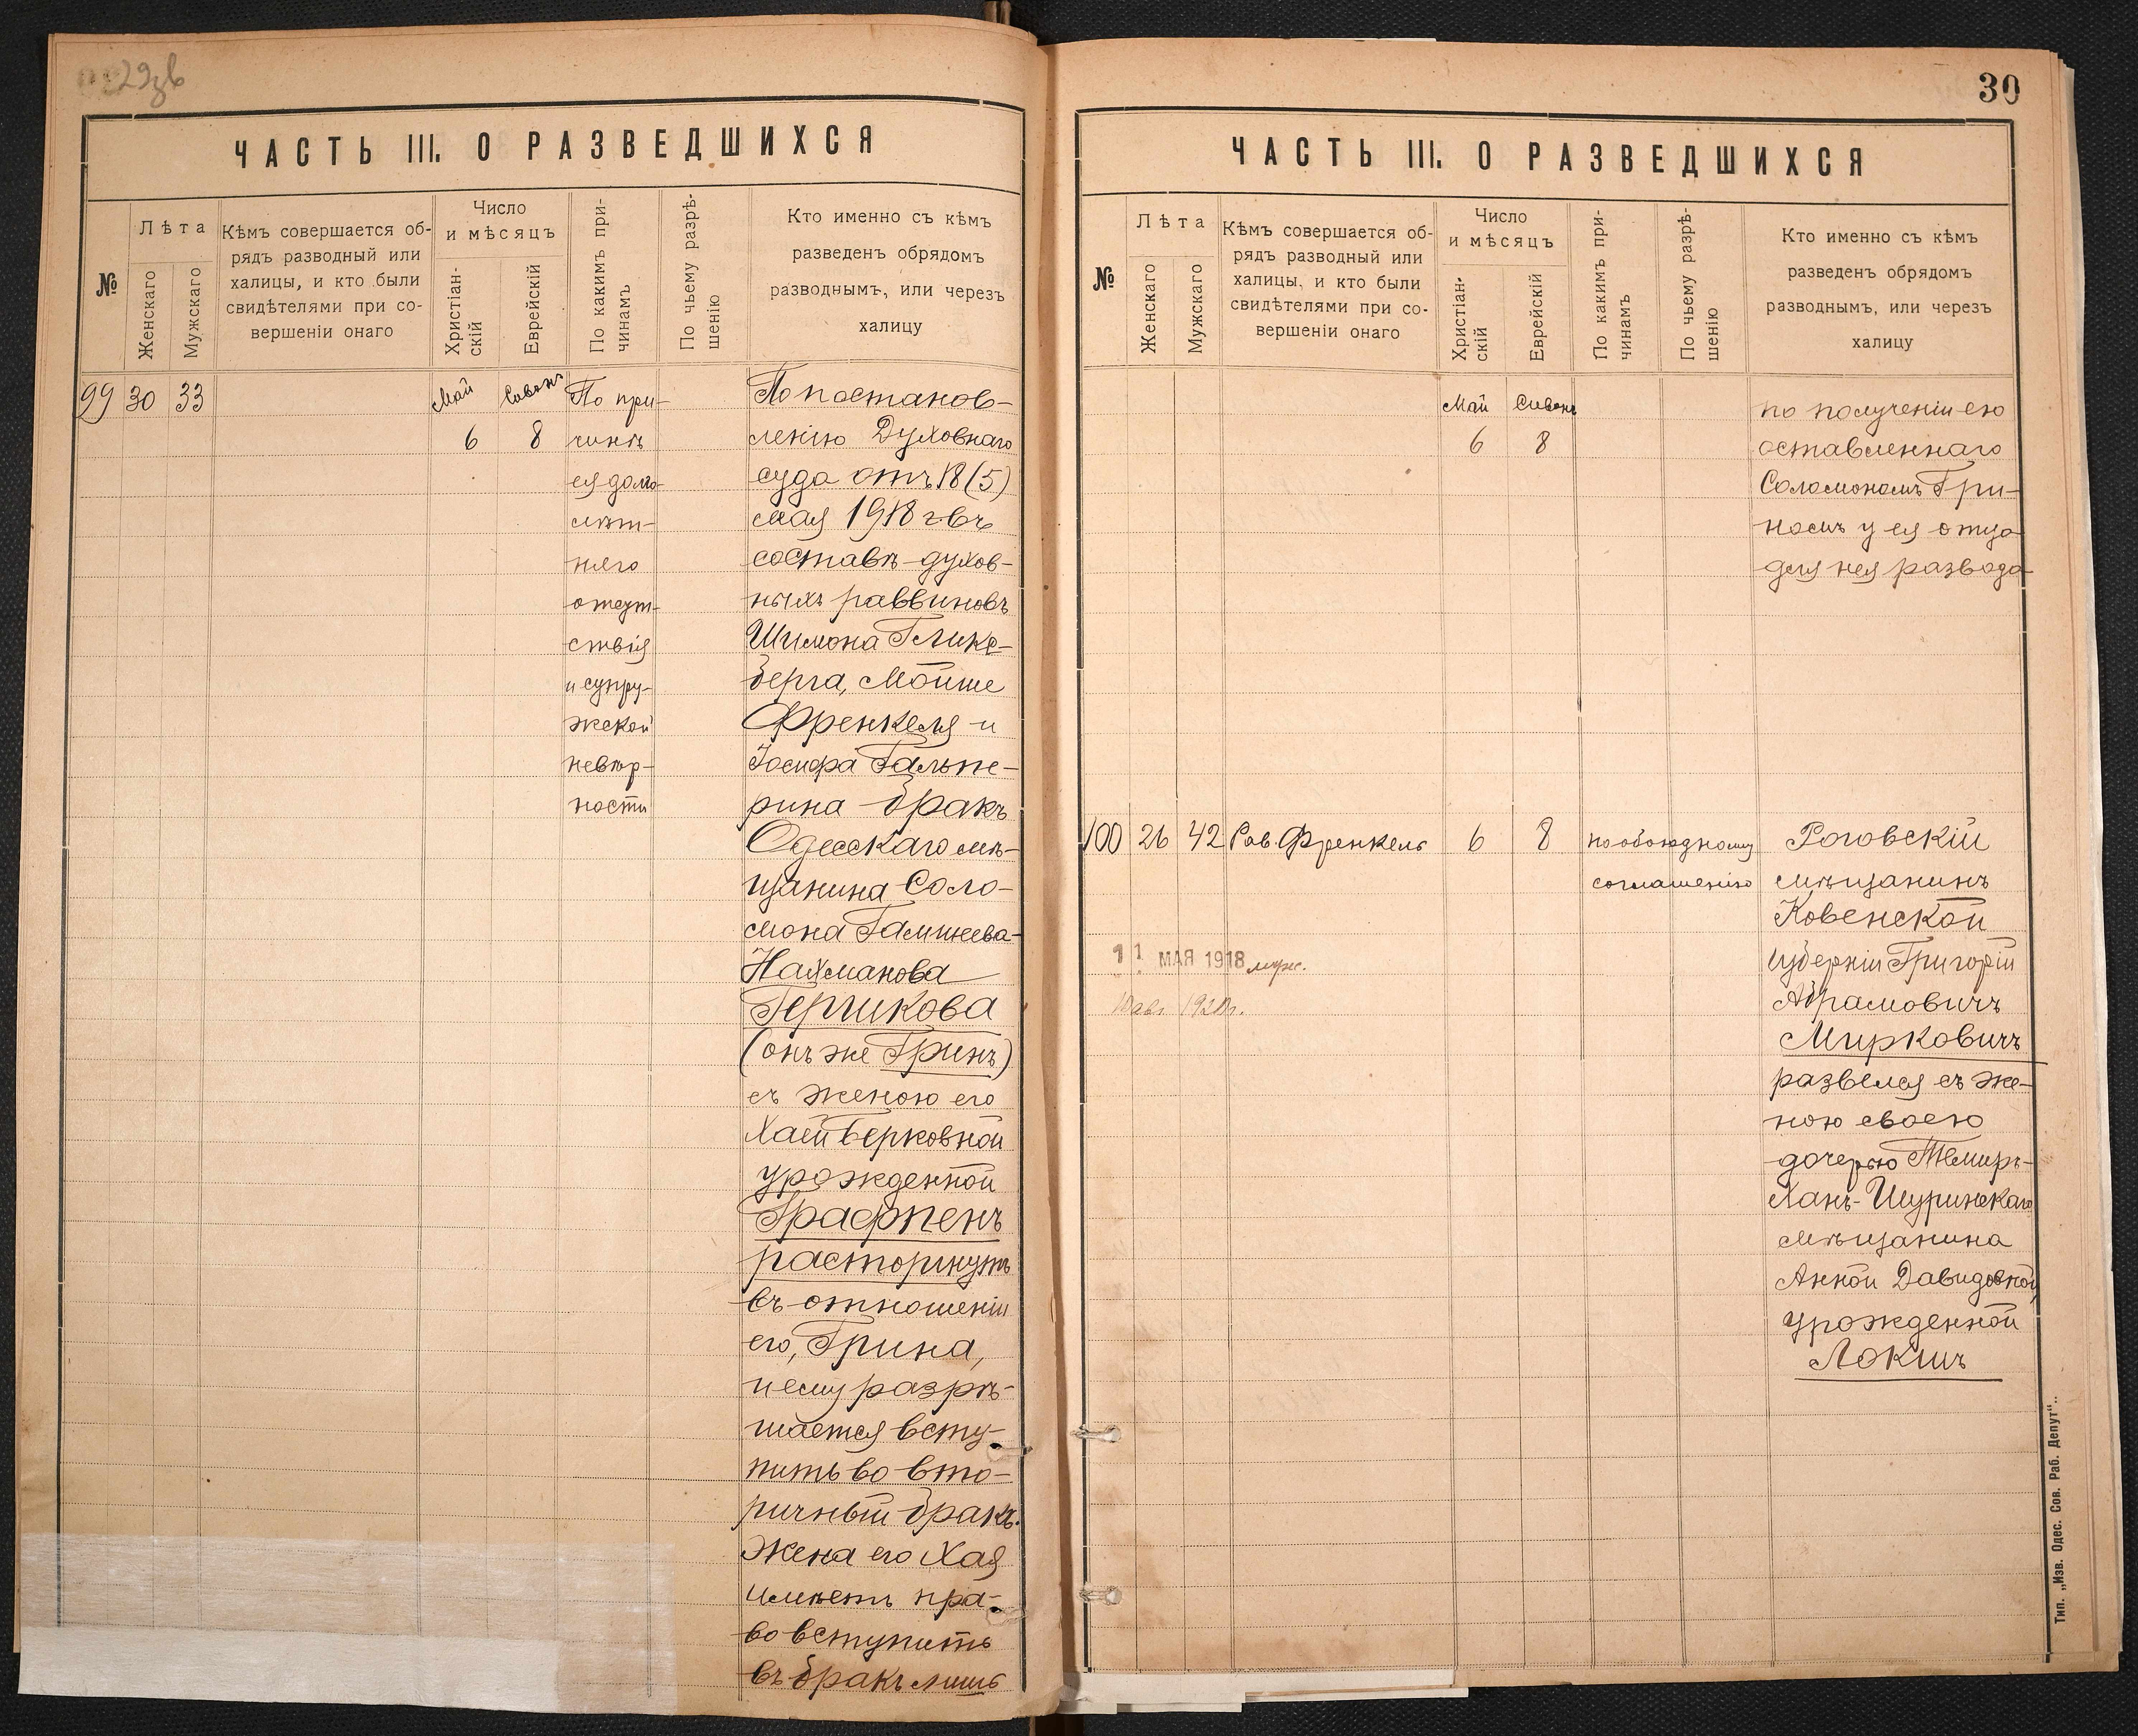 ЧАСТЬ III. О РАЗВЕДШИХСЯ
№
Лѣта
Женскаго
Мужскаго
Кѣмъ совершается об-
рядъ разводный или
халицы, и кто были
свидѣтелями при со-
вершеніи онаго
Число
и мѣсяцъ
Христіан-
скій
Еврейскій
По какимъ при-
чинамъ
По чьему разрѣ-
шенію
Кто именно съ кѣмъ
разведенъ обрядомъ
разводнымъ, или черезъ
халицу
99 30 33
Май Сивонъ
6 8
По при-
чинѣ
ея долго-
лѣт-
няго
отсут-
ствія
и супру-
жеской
невѣр-
ности
По постанов-
ленію Духовнаго
суда отъ 18 (5)
мая 1918 г въ
составѣ духов-
ныхъ раввиновъ
Шимона Гликс-
берга, Мойше
Френкеля и
Іосифа Гальпе-
рина бракъ
Одесскаго мѣ-
щанина Соло-
мона
Нахманова
Гершкова
(онъ же Гринъ)
съ женою его
Хаей Берковной
урожденной
Графпенъ
расторгнутъ
въ отношеніи
его, Грина,
и ему разрѣ-
шается всту-
пить во вто-
ричный бракъ.
Жена его Хая
имѣетъ пра-
во вступить
въ бракъ лишь
30
ЧАСТЬ III. О РАЗВЕДШИХСЯ
№
Лѣта
Женскаго
Мужскаго
Кѣмъ совершается об-
рядъ разводный или
халицы, и кто были
свидѣтелями при со-
вершеніи онаго
Число
и мѣсяцъ
Христіан-
скій
Еврейскій
По какимъ при-
чинамъ
По чьему разрѣ-
шенію
Кто именно съ кѣмъ
разведенъ обрядомъ
разводнымъ, или черезъ
халицу
Май Сивонъ
6 8
по полученіи ею
оставленнаго
Соломономъ Гри-
номъ у ея отца
для нея развода
100 26 42 Рав. Френкель 6 8
по обоюдному
соглашенію
Роговскій
мѣщанинъ
Ковенской
губерніи Григорій
Абрамовичъ
Мирковичъ
развелся съ же-
ною своею
дочерью Темиръ-
Ханъ-Шуринскаго
мѣщанина
Анной Давидовной,
урожденной
Локшъ
11 МАЯ 1918 муж.
1920 г.
Тип. „Изв. Одес. Сов. Раб. Депут“..